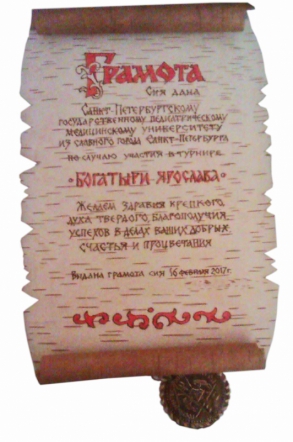 Грамота
Сия дана
Санкт-Петербургскому
государственному педиатрическому
медицинскому университету
из славного города Санкт-Петербурга
по случаю участия в турнире
•Богатыри Ярослава•
Желаем здравия крепкого
духа твердого, благополучия
успехов в делах ваших добрых
счастья и процветания
Выдана грамота сия 16 февраля 2017г.